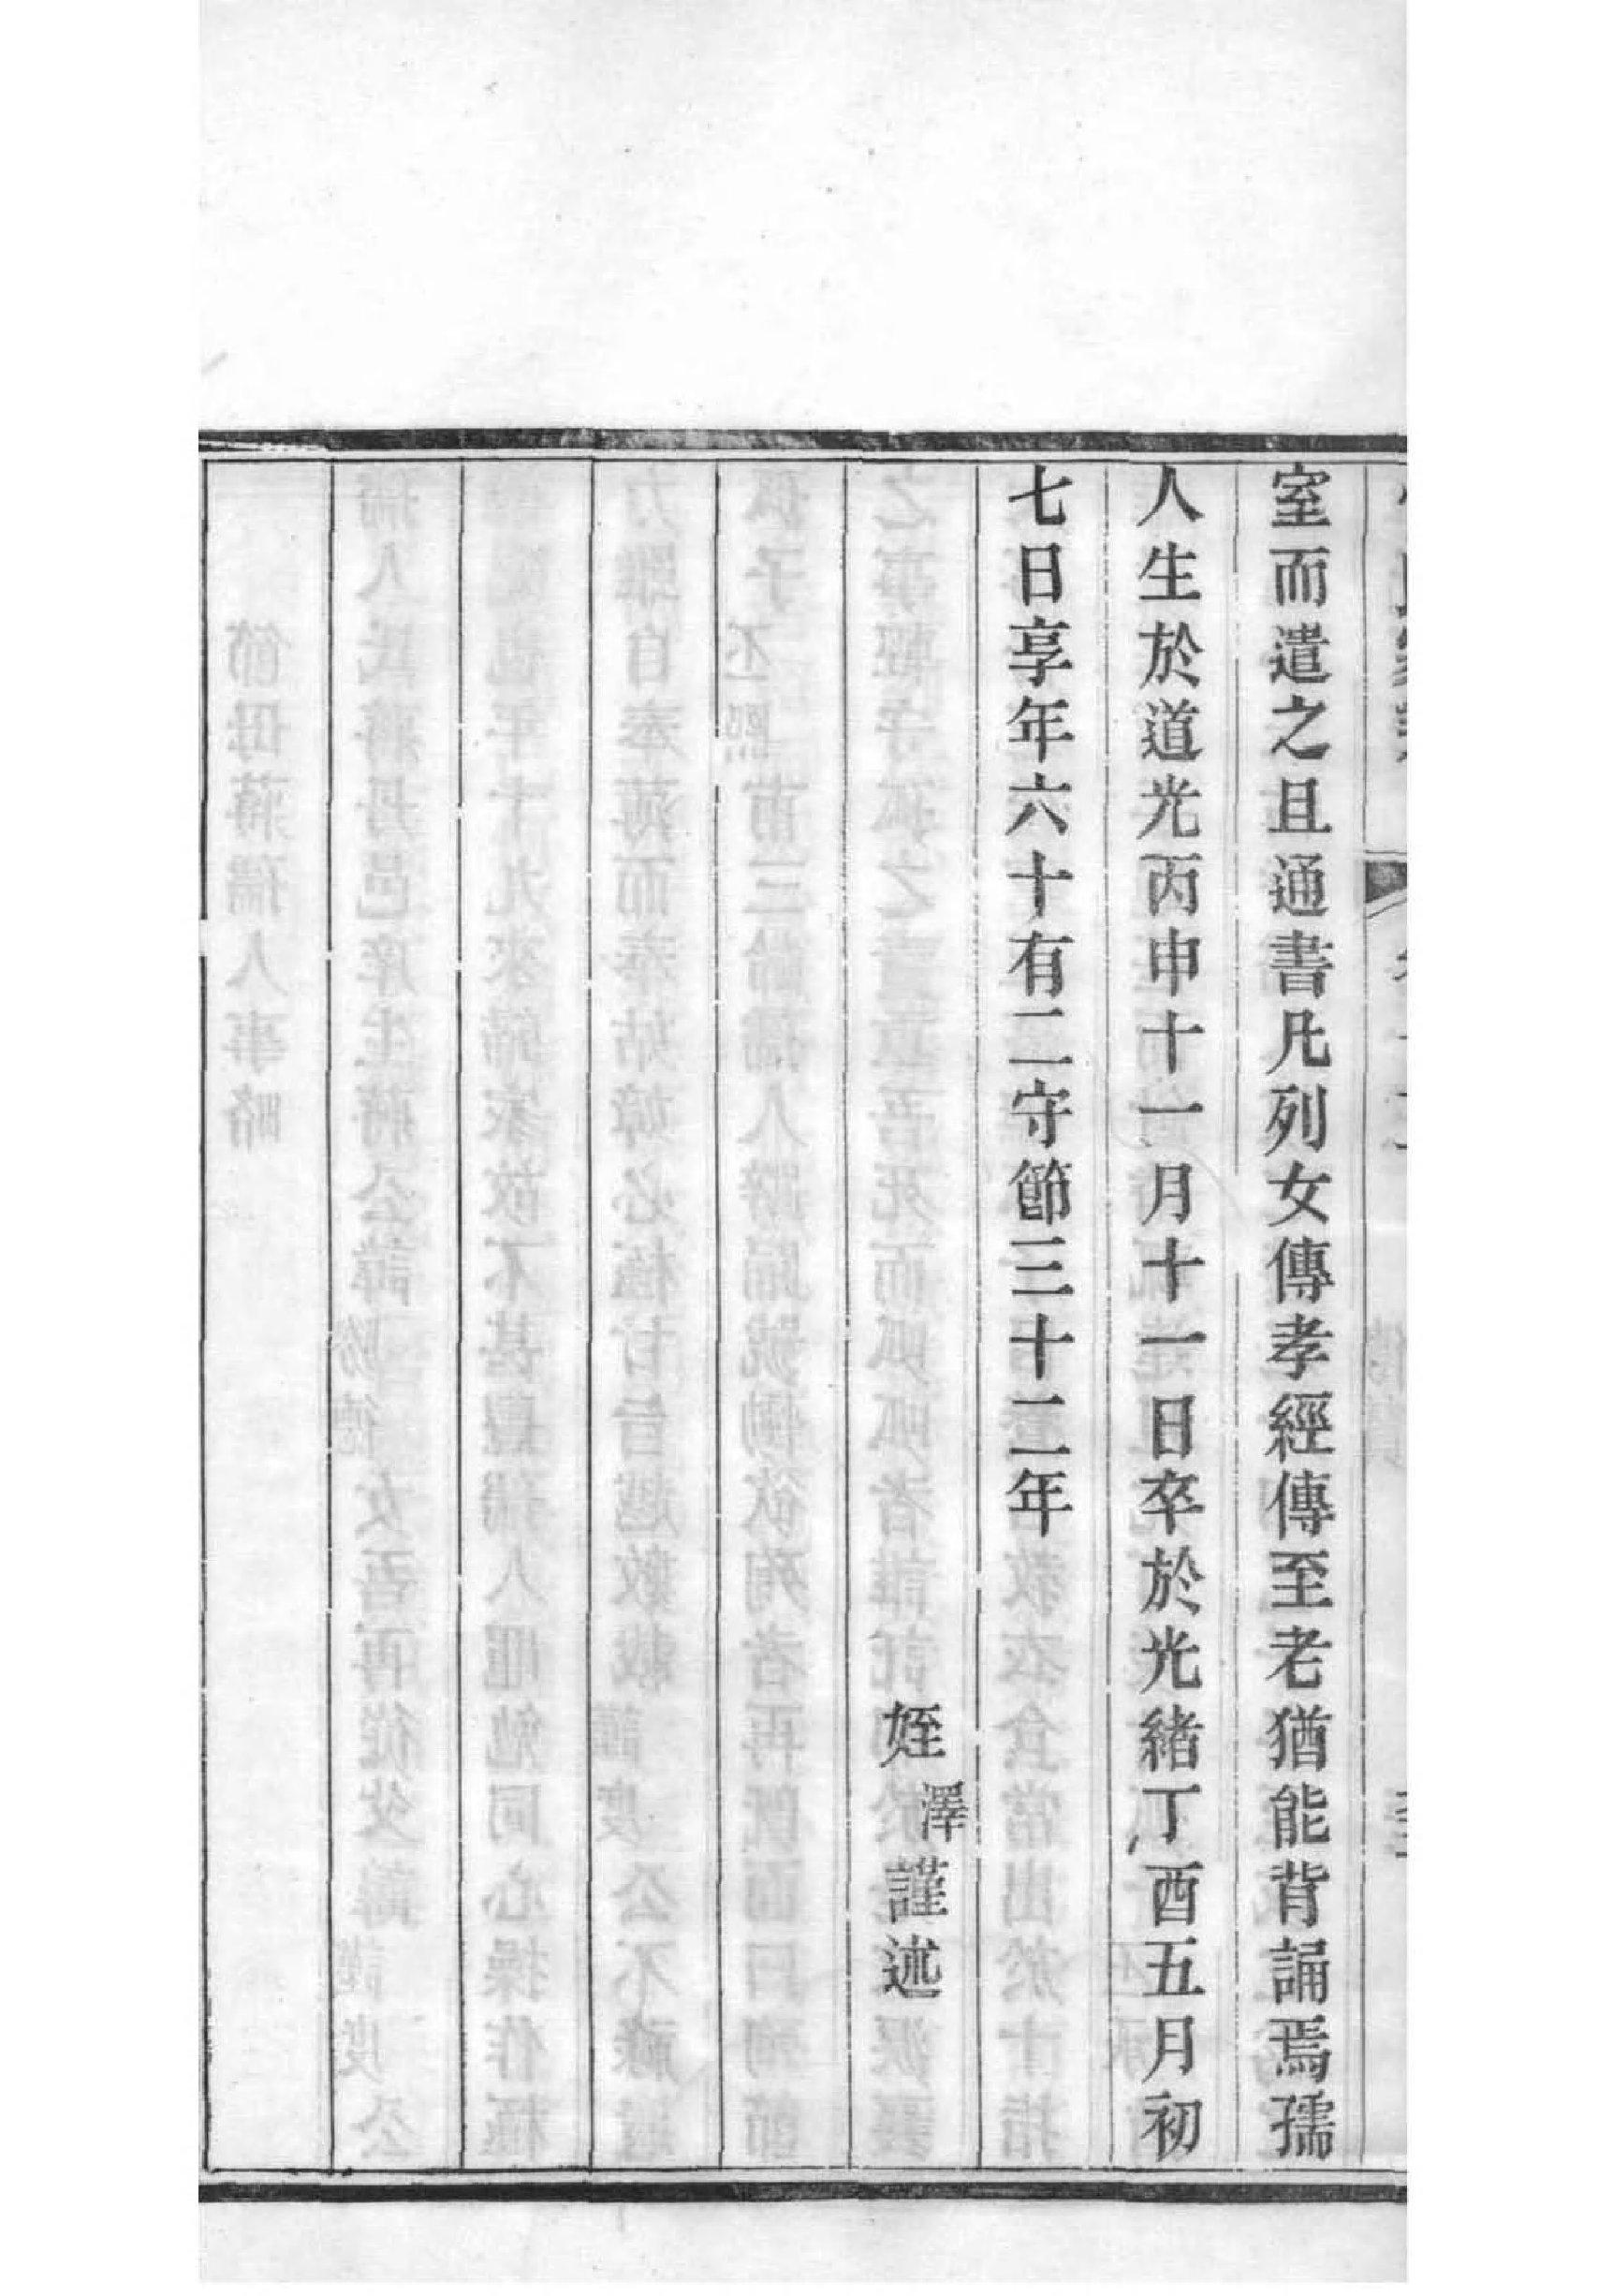 室而遣之且通書凡列女傳孝經傳至老猶能背誦焉孺
人生於道光丙申十一月十一日卒於光緒丁酉五月初
七日享年六十有二守節三十二年
姪澤謹述